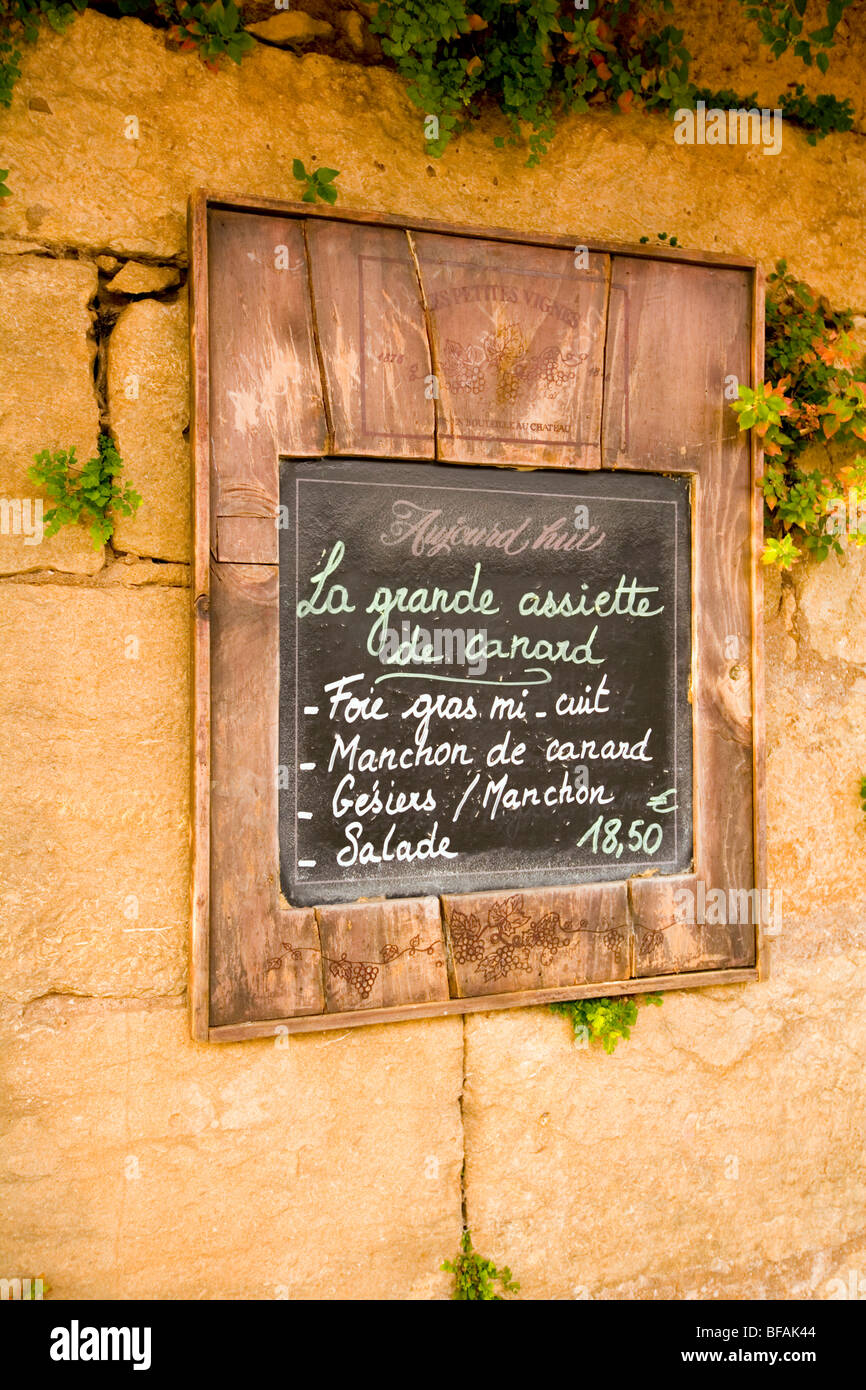 LES PETITES VIGNES
1878
18
EN BOUTEILLE AU CHATEAU
Aujourd'hui
La grande assiette
de canard
- Foie gras mi-cuit
- Manchon de canard
- Gésiers / Manchon €
- Salade 18,50
alamy
Image ID: BFAK44
www.alamy.com